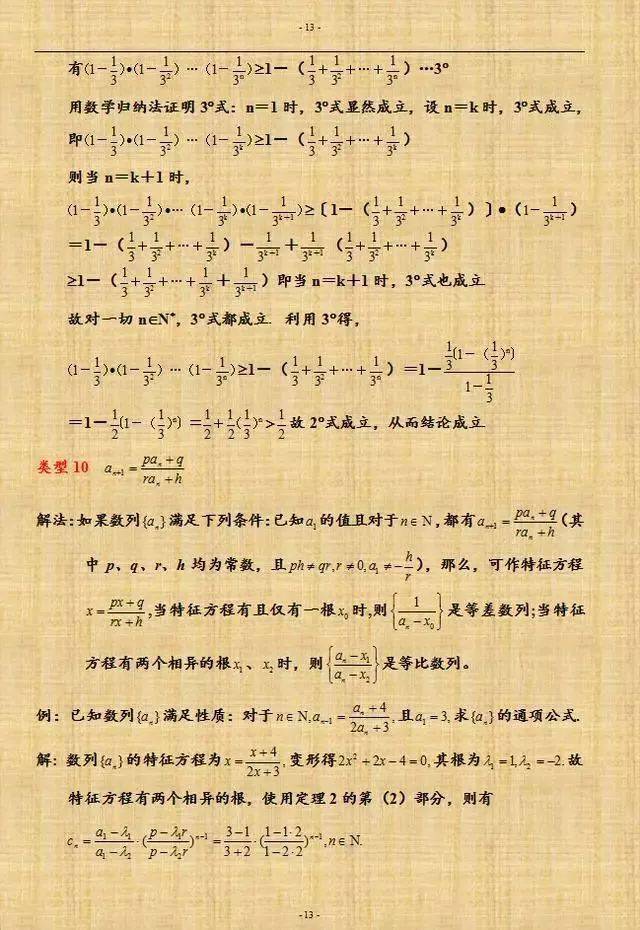 - 13 -
有(1－1/3)•(1－1/3²) … (1－1/3ⁿ)≥1－（1/3＋1/3²＋…＋1/3ⁿ）…3°
用数学归纳法证明3°式：n＝1时，3°式显然成立，设n＝k时，3°式成立，
即(1－1/3)•(1－1/3²) … (1－1/3ᵏ)≥1－（1/3＋1/3²＋…＋1/3ᵏ）
则当n＝k＋1时，
(1－1/3)•(1－1/3²)•… (1－1/3ᵏ)•(1－1/3ᵏ⁺¹)≥〔1－（1/3＋1/3²＋…＋1/3ᵏ）〕•（1－1/3ᵏ⁺¹）
＝1－（1/3＋1/3²＋…＋1/3ᵏ）－1/3ᵏ⁺¹＋1/3ᵏ⁺¹（1/3＋1/3²＋…＋1/3ᵏ）
≥1－（1/3＋1/3²＋…＋1/3ᵏ＋1/3ᵏ⁺¹）即当n＝k＋1时，3°式也成立
故对一切n∈N*，3°式都成立. 利用3°得，
(1－1/3)•(1－1/3²) … (1－1/3ⁿ)≥1－（1/3＋1/3²＋…＋1/3ⁿ）＝1－(1/3[1－（1/3)ⁿ])/(1－1/3)
＝1－1/2[1－（1/3)ⁿ]＝1/2＋1/2(1/3)ⁿ>1/2故2°式成立，从而结论成立
类型10 aₙ₊₁ = (paₙ + q)/(raₙ + h)
解法：如果数列{aₙ}满足下列条件：已知a₁的值且对于n∈N，都有aₙ₊₁ = (paₙ + q)/(raₙ + h)（其
中p、q、r、h均为常数，且ph ≠ qr, r ≠ 0, a₁ ≠ -h/r），那么，可作特征方程
x = (px + q)/(rx + h),当特征方程有且仅有一根x₀时,则{1/(aₙ - x₀)}是等差数列;当特征
方程有两个相异的根x₁、x₂时，则{(aₙ - x₁)/(aₙ - x₂)}是等比数列。
例：已知数列{aₙ}满足性质：对于n∈N, aₙ₋₁ = (aₙ + 4)/(2aₙ + 3), 且a₁ = 3, 求{aₙ}的通项公式.
解：数列{aₙ}的特征方程为x = (x + 4)/(2x + 3), 变形得2x² + 2x - 4 = 0, 其根为λ₁ = 1, λ₂ = -2. 故
特征方程有两个相异的根，使用定理2的第（2）部分，则有
cₙ = (a₁ - λ₁)/(a₁ - λ₂)·((p - λ₁r)/(p - λ₂r))ⁿ⁻¹ = (3-1)/(3+2)·((1-1·2)/(1-2·2))ⁿ⁻¹, n∈N.
- 13 -